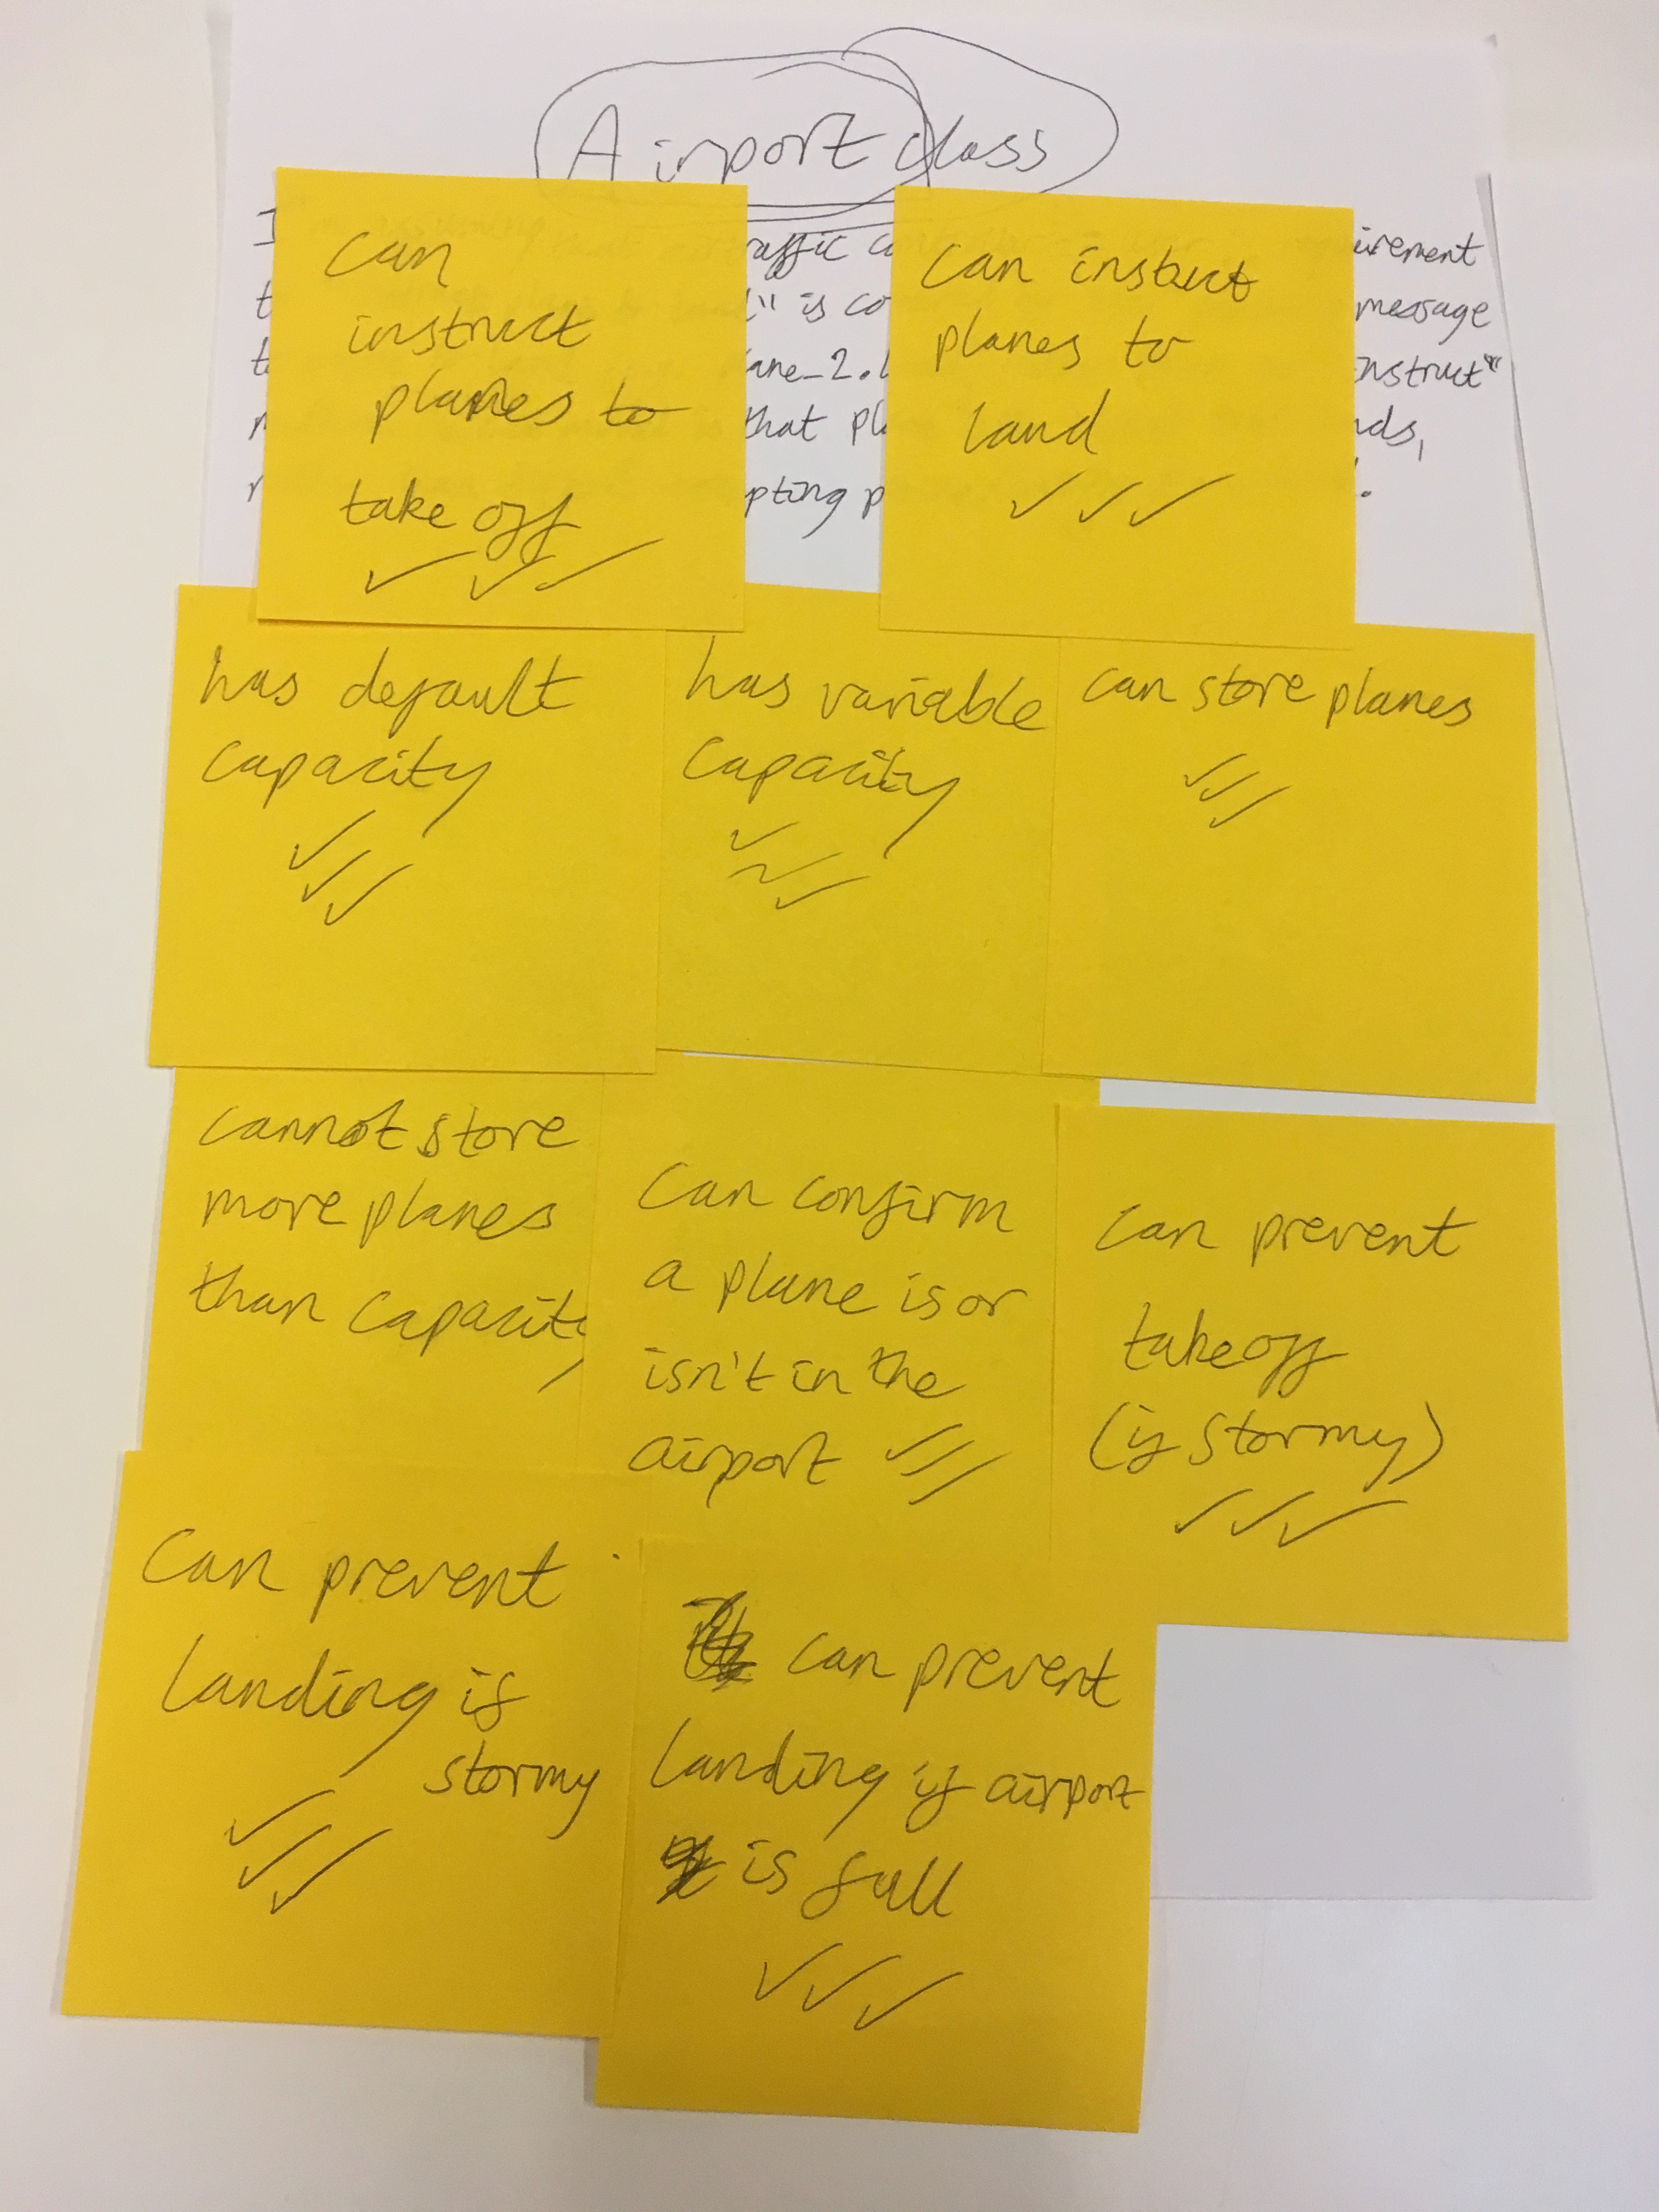 Airport class
raffic irement
" is message
ane_2. instruct"
that nds,
pting
can
instruct
planes to
take off
can instuct
planes to
land
has default
capacity
has variable
capacity
can store planes
cannot store
more planes
than capacity
can confirm
a plane is or
isn't in the
airport
can prevent
takeoff
(if stormy)
can prevent
landing is
stormy
can prevent
landing if airport
is full